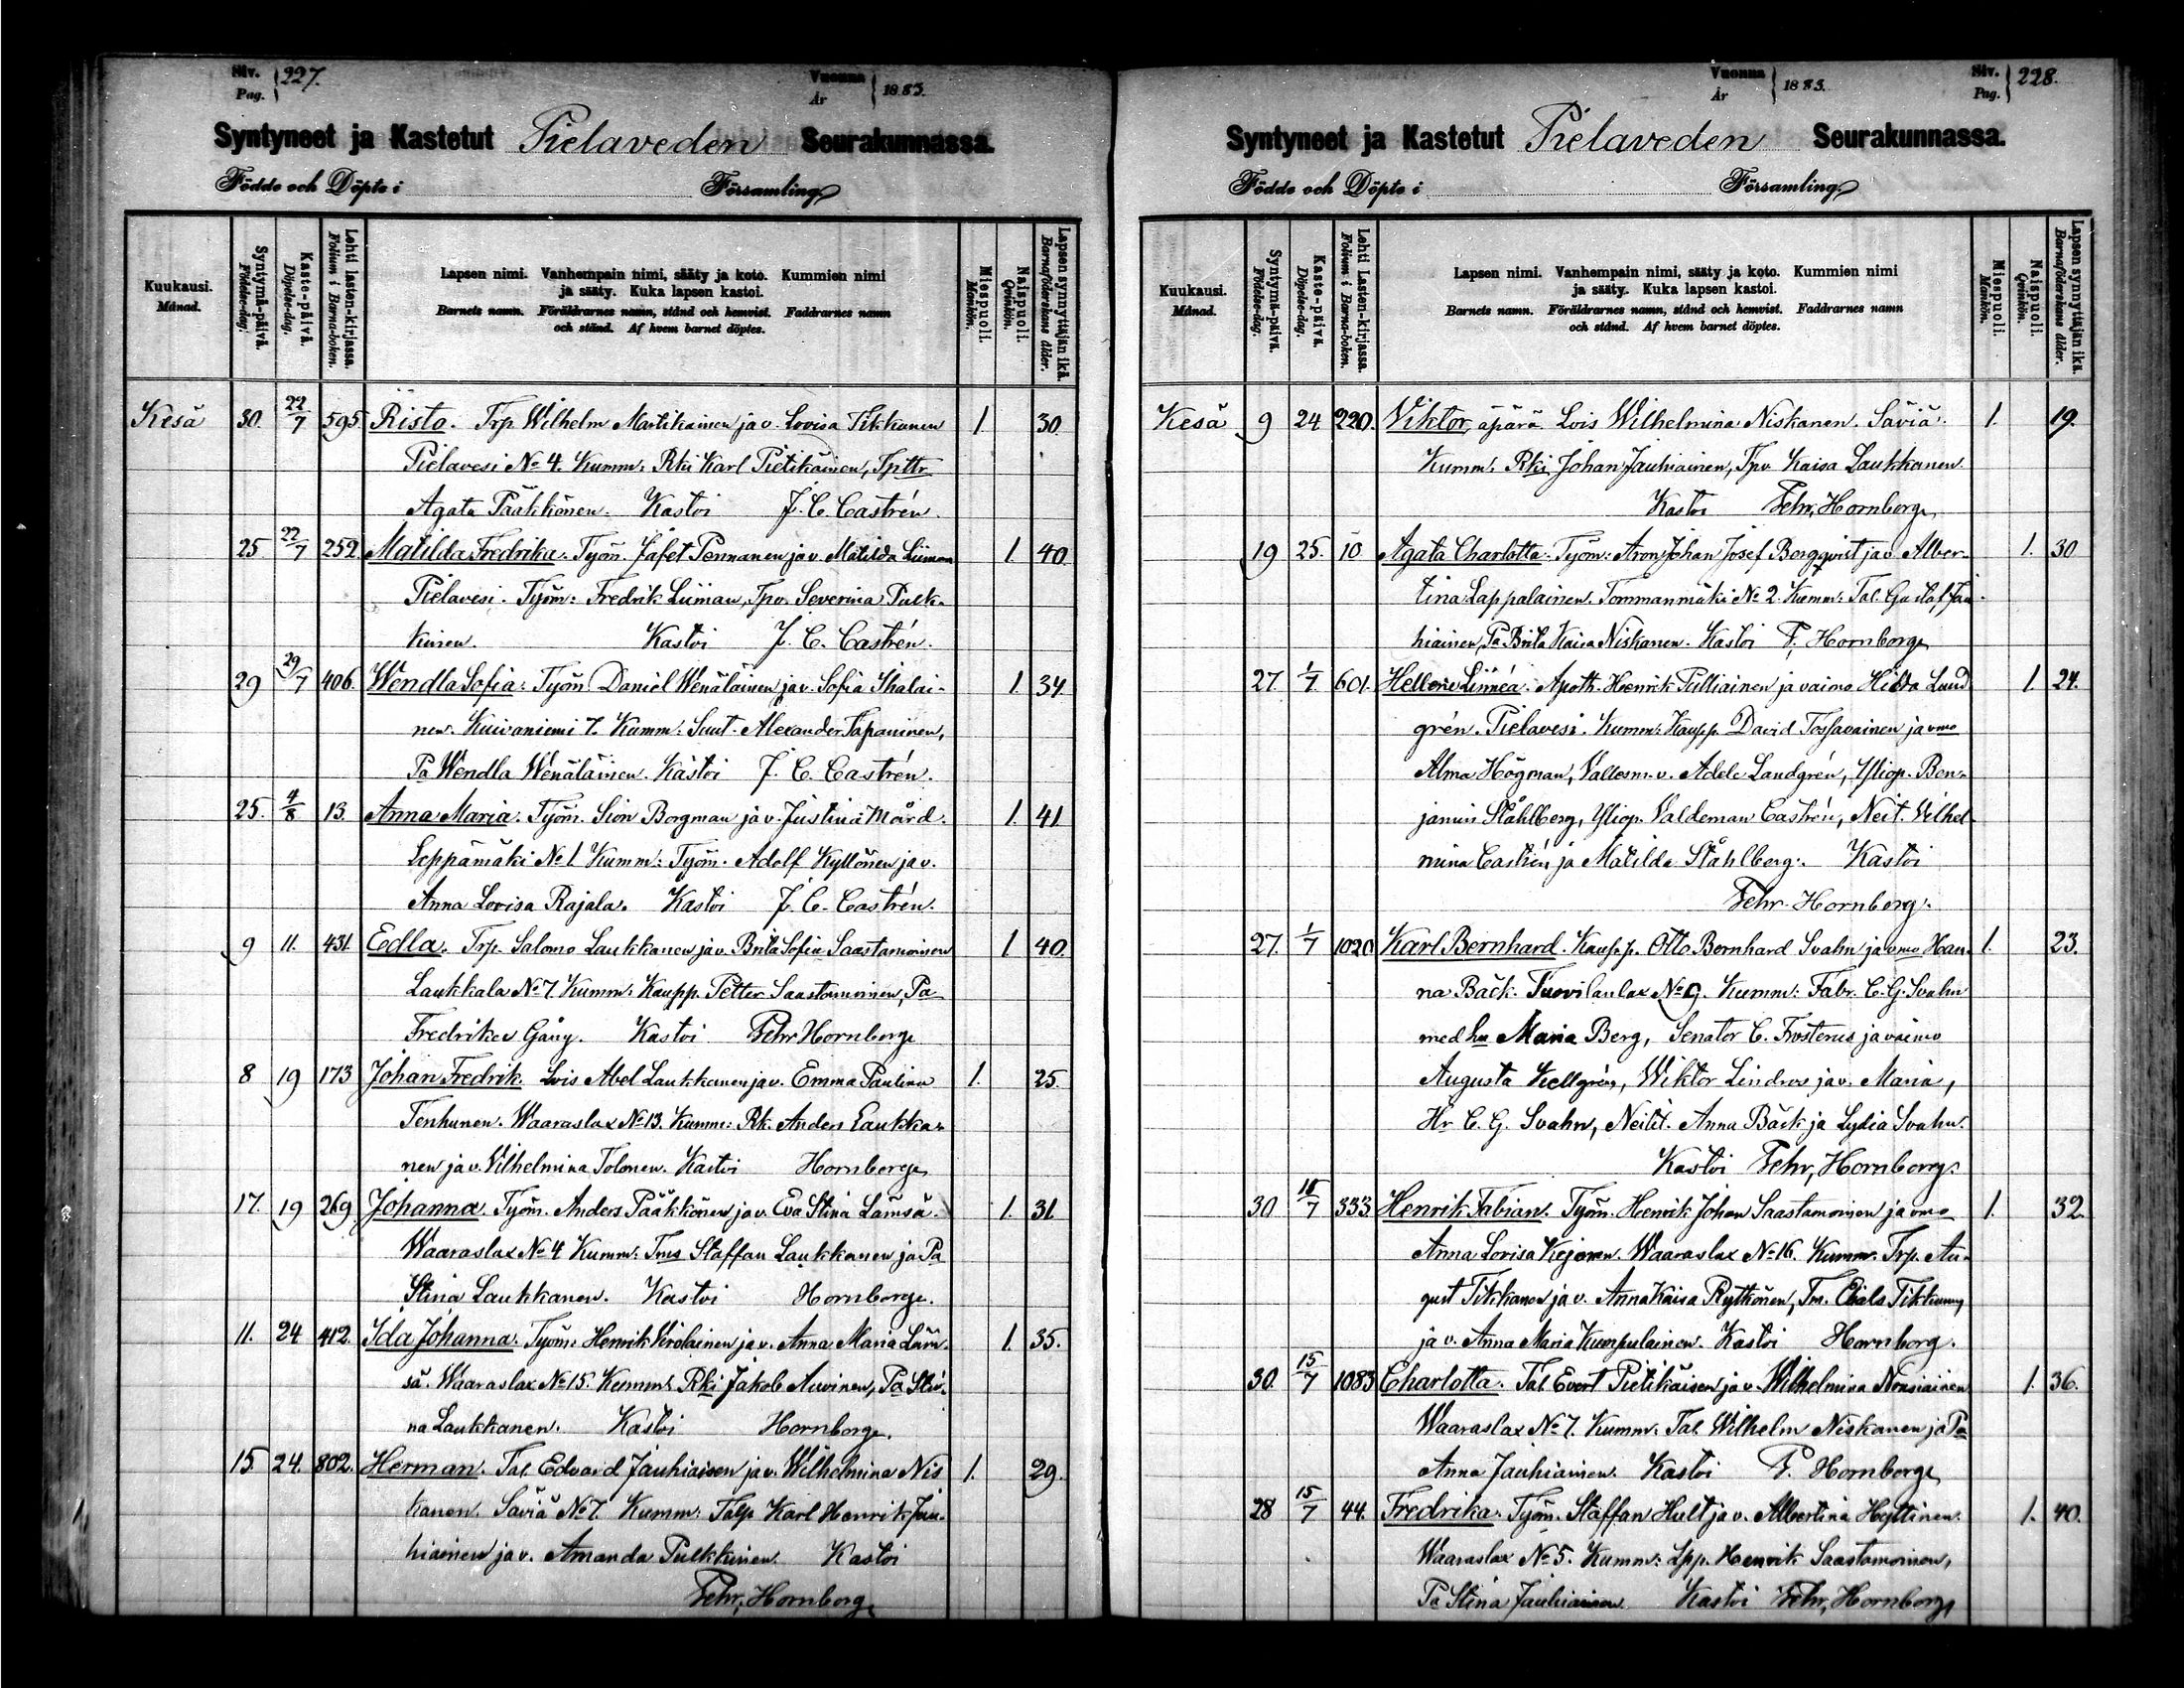 Siv. Pag. 227. Vuonna År 1883.
Syntyneet ja Kastetut Pielaveden Seurakunnassa.
Födde och Döpte i Församling
Kuukausi. Månad.
Syntymä-päivä. Födelse-dag.
Kaste-päivä. Döpelse-dag.
Lehti lasten-kirjassa. Folium i Barna-boken.
Lapsen nimi. Vanhempain nimi, sääty ja koto. Kummien nimi
ja sääty. Kuka lapsen kastoi.
Barnets namn. Föräldrarnes namn, stånd och hemvist. Faddrarnes namn
och stånd. Af hvem barnet döptes.
Miespuoli. Mankön.
Naispuoli. Qvinkön.
Lapsen synnyttäjän ikä. Barnaföderskans ålder.
Kesä 30. 22/7 595 Risto. Trp. Wilhelm Martikainen ja v. Lovisa Tikkanen 1. 30.
Pielavesi No 4. Kumm: Rki Karl Pietikäinen, Tpttr
Agata Pääkkönen. Kastoi J. C. Castrén.
25 22/7 252. Matilda Fredrika. Työm. Jafet Pennanen ja v. Matilda Liiman 1. 40.
Pielavesi. Työm: Fredrik Liiman, Tpv. Severina Pulk-
kinen. Kastoi J. C. Castrén.
29 29/7 406. Wendla Sofia: Työm Daniel Wenäläinen ja v. Sofia Ihalai- 1. 34.
nen. Kuivaniemi 7. Kumm: Suut. Alexander Tapaninen,
Pa Wendla Wenäläinen. Kastoi J. C. Castrén.
25. 4/8 13. Anna Maria. Työm. Sion Borgman ja v. Justina Mård. 1. 41
Leppämäki No 1 Kumm: Työm. Adolf Kyllönen ja v.
Anna Lovisa Rajala. Kastoi J. C. Castrén.
9 11. 431. Edla. Trp. Salomo Laukkanen ja v. Brita Sofia Saastamoinen 1. 40.
Laukkala No 7. Kumm: Kaupp. Petter Saastamoinen, Pa
Fredrika Kastoi Fehr Hornborg
8 19 173 Johan Fredrik. Lois Abel Laukkanen ja v. Emma Paulina 1. 25.
Tenhunen. Waaraslax No 13. Kumm: Rk. Anders Laukka-
nen ja v. Vilhelmina Tolonen. Kastoi Hornborg
17. 19 269 Johanna. Työm. Anders Pääkkönen ja v. Eva Stina Lämsä. 1. 31.
Waaraslax No 4 Kumm: Tms Staffan Laukkanen ja Pa
Stina Laukkanen. Kastoi Hornborg.
11. 24 412. Ida Johanna. Työm. Henrik Wirolainen ja v. Anna Maria Läm- 1. 35.
sä. Waaraslax No 15. Kumm: Rki Jakob Auvinen, Pa Sti-
na Laukkanen. Kastoi Hornborg.
15 24. 802. Herman. Tal. Edvard Jauhiainen ja v. Wilhelmina Nis 1. 29.
kanen. Säviä No 7. Kumm: Talp. Karl Henrik Jau-
hiainen ja v. Amanda Pulkkinen Kastoi
Fehr. Hornborg
Vuonna År 1883. Siv. Pag. 228.
Syntyneet ja Kastetut Pielaveden Seurakunnassa.
Födde och Döpte i Församling
Kuukausi. Månad.
Syntymä-päivä. Födelse-dag.
Kaste-päivä. Döpelse-dag.
Lehti Lasten-kirjassa. Folium i Barna-boken.
Lapsen nimi. Vanhempain nimi, sääty ja koto. Kummien nimi
ja sääty. Kuka lapsen kastoi.
Barnets namn. Föräldrarnes namn, stånd och hemvist. Faddrarnes namn
och stånd. Af hvem barnet döptes.
Miespuoli. Mankön.
Naispuoli. Qvinkön.
Lapsen synnyttäjän ikä. Barnaföderskans ålder.
Kesä 9 24 220. Viktor, äpärä Lois Wilhelmina Niskanen. Säviä. 1. 19.
Kumm: Rki Johan Jauhiainen, Tpv. Kaisa Laukkanen.
Kastoi Fehr. Hornborg
19 25. 10 Agata Charlotta. Työm: Aron Johan Josef Borgqvist ja v. Alber- 1. 30
tina Lappalainen. Tommanmäki No 2. Kumm: Tal. Gustaf Jau-
hiainen, Pa Brita Kaisa Niskanen. Kastoi F. Hornborg
27. 1/7 601. Linnéa. Apoth. Henrik Pulliainen ja vaimo Hilda Lund 1. 24.
grén. Pielavesi. Kumm: Kaupp. David Tossavainen ja vmo
Alma Högman, Vallesm. v. Adele Landgrén, Yliop. Ben-
jamin Ståhlberg, Yliop. Valdemar Castrén, Neit. Wilhel-
mina Castrén ja Matilda Ståhlberg. Kastoi
Fehr. Hornborg.
27. 1/7 1020 Karl Bernhard. Kaupp. Otto Bernhard Svahn ja vmo Han- 1. 23.
na Bäck. Tuovilanlax No 9. Kumm: Fabr. C. G. Svahn
med hu Maria Berg, Senator C. Frosterus ja vaimo
Augusta Kellgrén, Wiktor Lindros ja v. Maria,
Hr C. G. Svahn, Neitit. Anna Bäck ja Lydia Svahn.
Kastoi Fehr. Hornborg.
30 15/7 333 Henrik Fabian. Työm. Henrik Johan Saastamoinen ja vmo 1. 32.
Anna Lovisa Waaraslax No 16. Kumm: Trp. Au-
gust Tikkanen ja v. Anna Kaisa Rytkönen, Tm. Tikkanen
ja v. Anna Maria Kumpulainen. Kastoi Hornborg.
30. 15/7 1083 Charlotta. Tal. Evert Pietikäinen ja v. Wilhelmina Nousiainen 1. 36.
Waaraslax No 7. Kumm: Tal. Wilhelm Niskanen ja Pa
Anna Jauhiainen. Kastoi F. Hornborg
28 15/7 44. Fredrika. Työm. Staffan Hult ja v. Albertina Hyttinen. 1. 40.
Waaraslax No 5. Kumm: Lpp. Henrik Saastamoinen,
Pa Stina Jauhiainen Kastoi Fehr. Hornborg